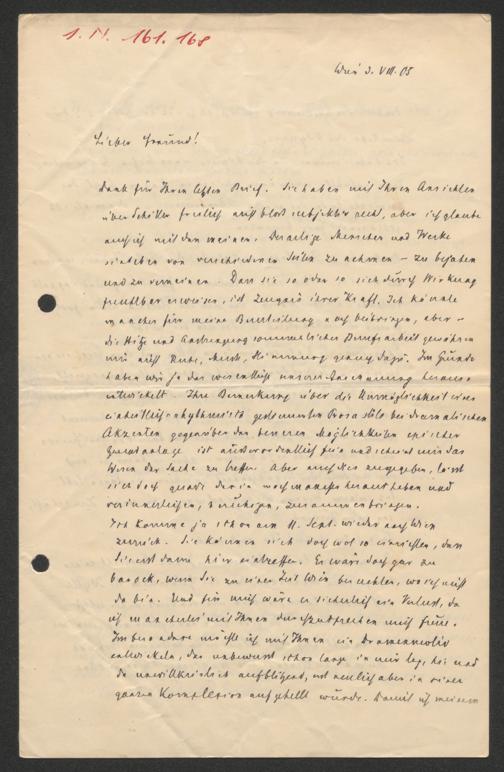 I. N. 161.168
Wien 3. VIII. 05
Lieber Freund!
Dank für Ihren letzten Brief. Sie haben mit Ihren Ansichten
über Schiller freilich nicht bloß subjektiv recht, aber ich glaube
auch ich mit den meinen. Derartige Menschen und Werke
sind eben von verschiedenen Seiten zu nehmen – zu bejahen
und zu verneinen. Dass sie so oder so sich durch Wirkung
fruchtbar erweisen, ist Zeugnis ihrer Kraft. Ich könnte
manches für meine Beurteilung noch beibringen, aber –
die Hitze und Anstrengung sommerlicher Berufsarbeit gewähren
mir nicht Ruhe, Musse, Stimmung genug dazu. Im Grunde
haben wir ja das wesentliche unserer Anschauung heraus-
entwickelt. Ihre Bemerkung über die Unmöglichkeit eines
einheitlich rhythmisch Prosastils bei dramatischen
Akzenten gegenüber den besseren Möglichkeiten epischer
Grundanlage ist ausserordentlich fein und scheint mir das
Wesen der Sache zu treffen. Aber auch dies zugegeben, lässt
sich doch gerade darin noch manches herausheben und
verinnerlichen, beruhigen, zusammenbringen.
Ich komme ja schon am 11. Sept. wieder nach Wien
zurück. Sie können sich doch wol so einrichten, dass
Sie erst dann hier eintreffen. Es wäre doch gar zu
barock, wenn Sie zu einer Zeit Wien besuchten, wo ich nicht
da bin. Und für mich wäre es sicherlich ein Verlust, da
ich mancherlei mit Ihnen durchzusprechen mich freue.
Insbesondere möchte ich mit Ihnen ein Dramenmotiv
entwickeln, das unbewusst schon lange in mir lag, hie und
da unwillkürlich aufblitzend, mit neulich aber in seiner
ganzen Komplexion aufgehellt wurde. Damit ich meinem